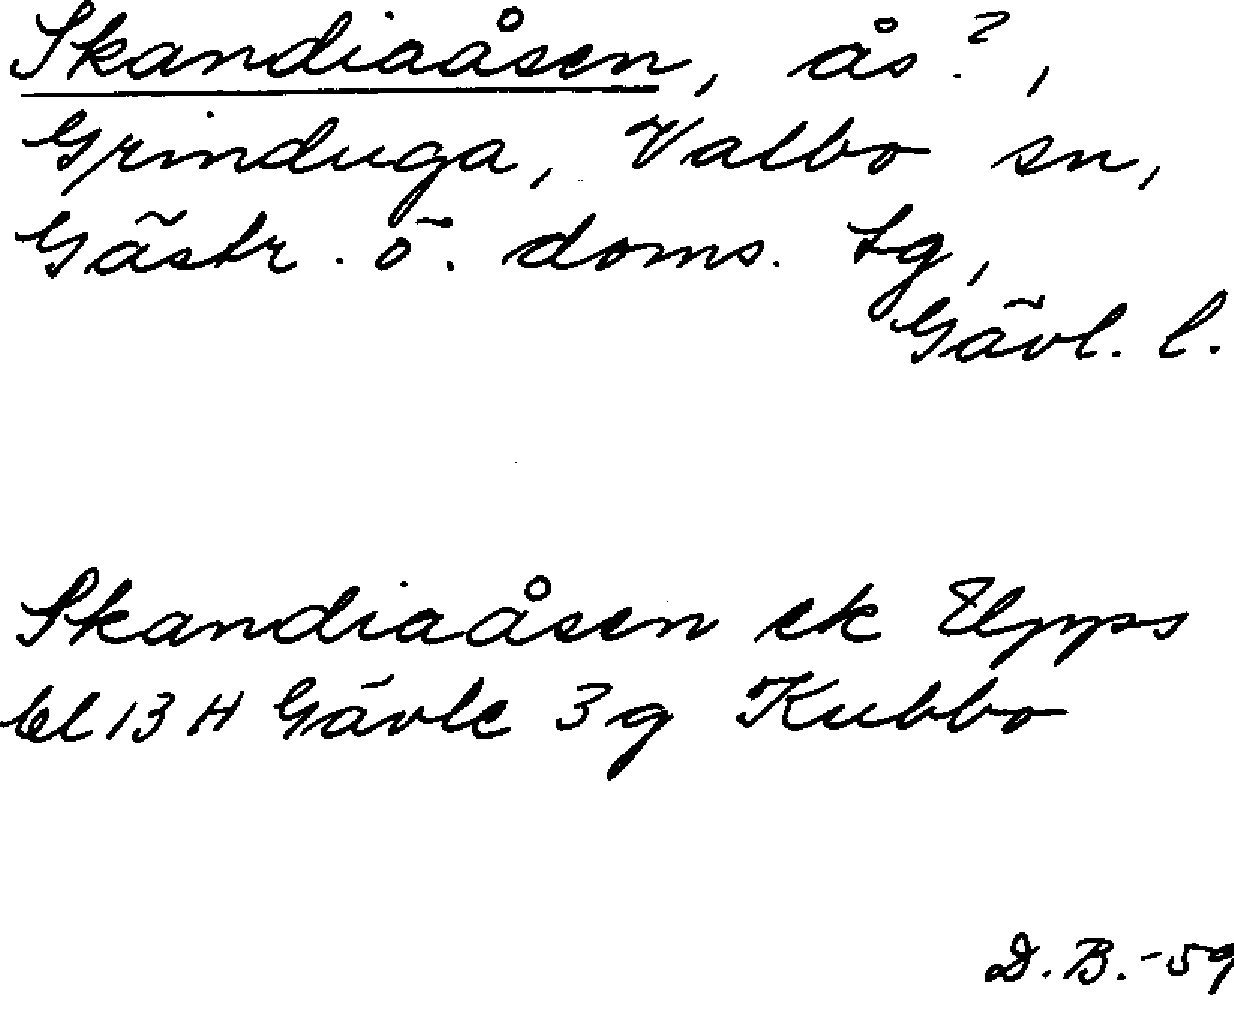 Skandiaåsen, ås?,
Grinduga, Valbo sn,
Gästr. ö. doms. tg,
Gävl. l.
Skandiaåsen ek Upps
bl 13 H Gävle 3g Kubbo
D. B. -59